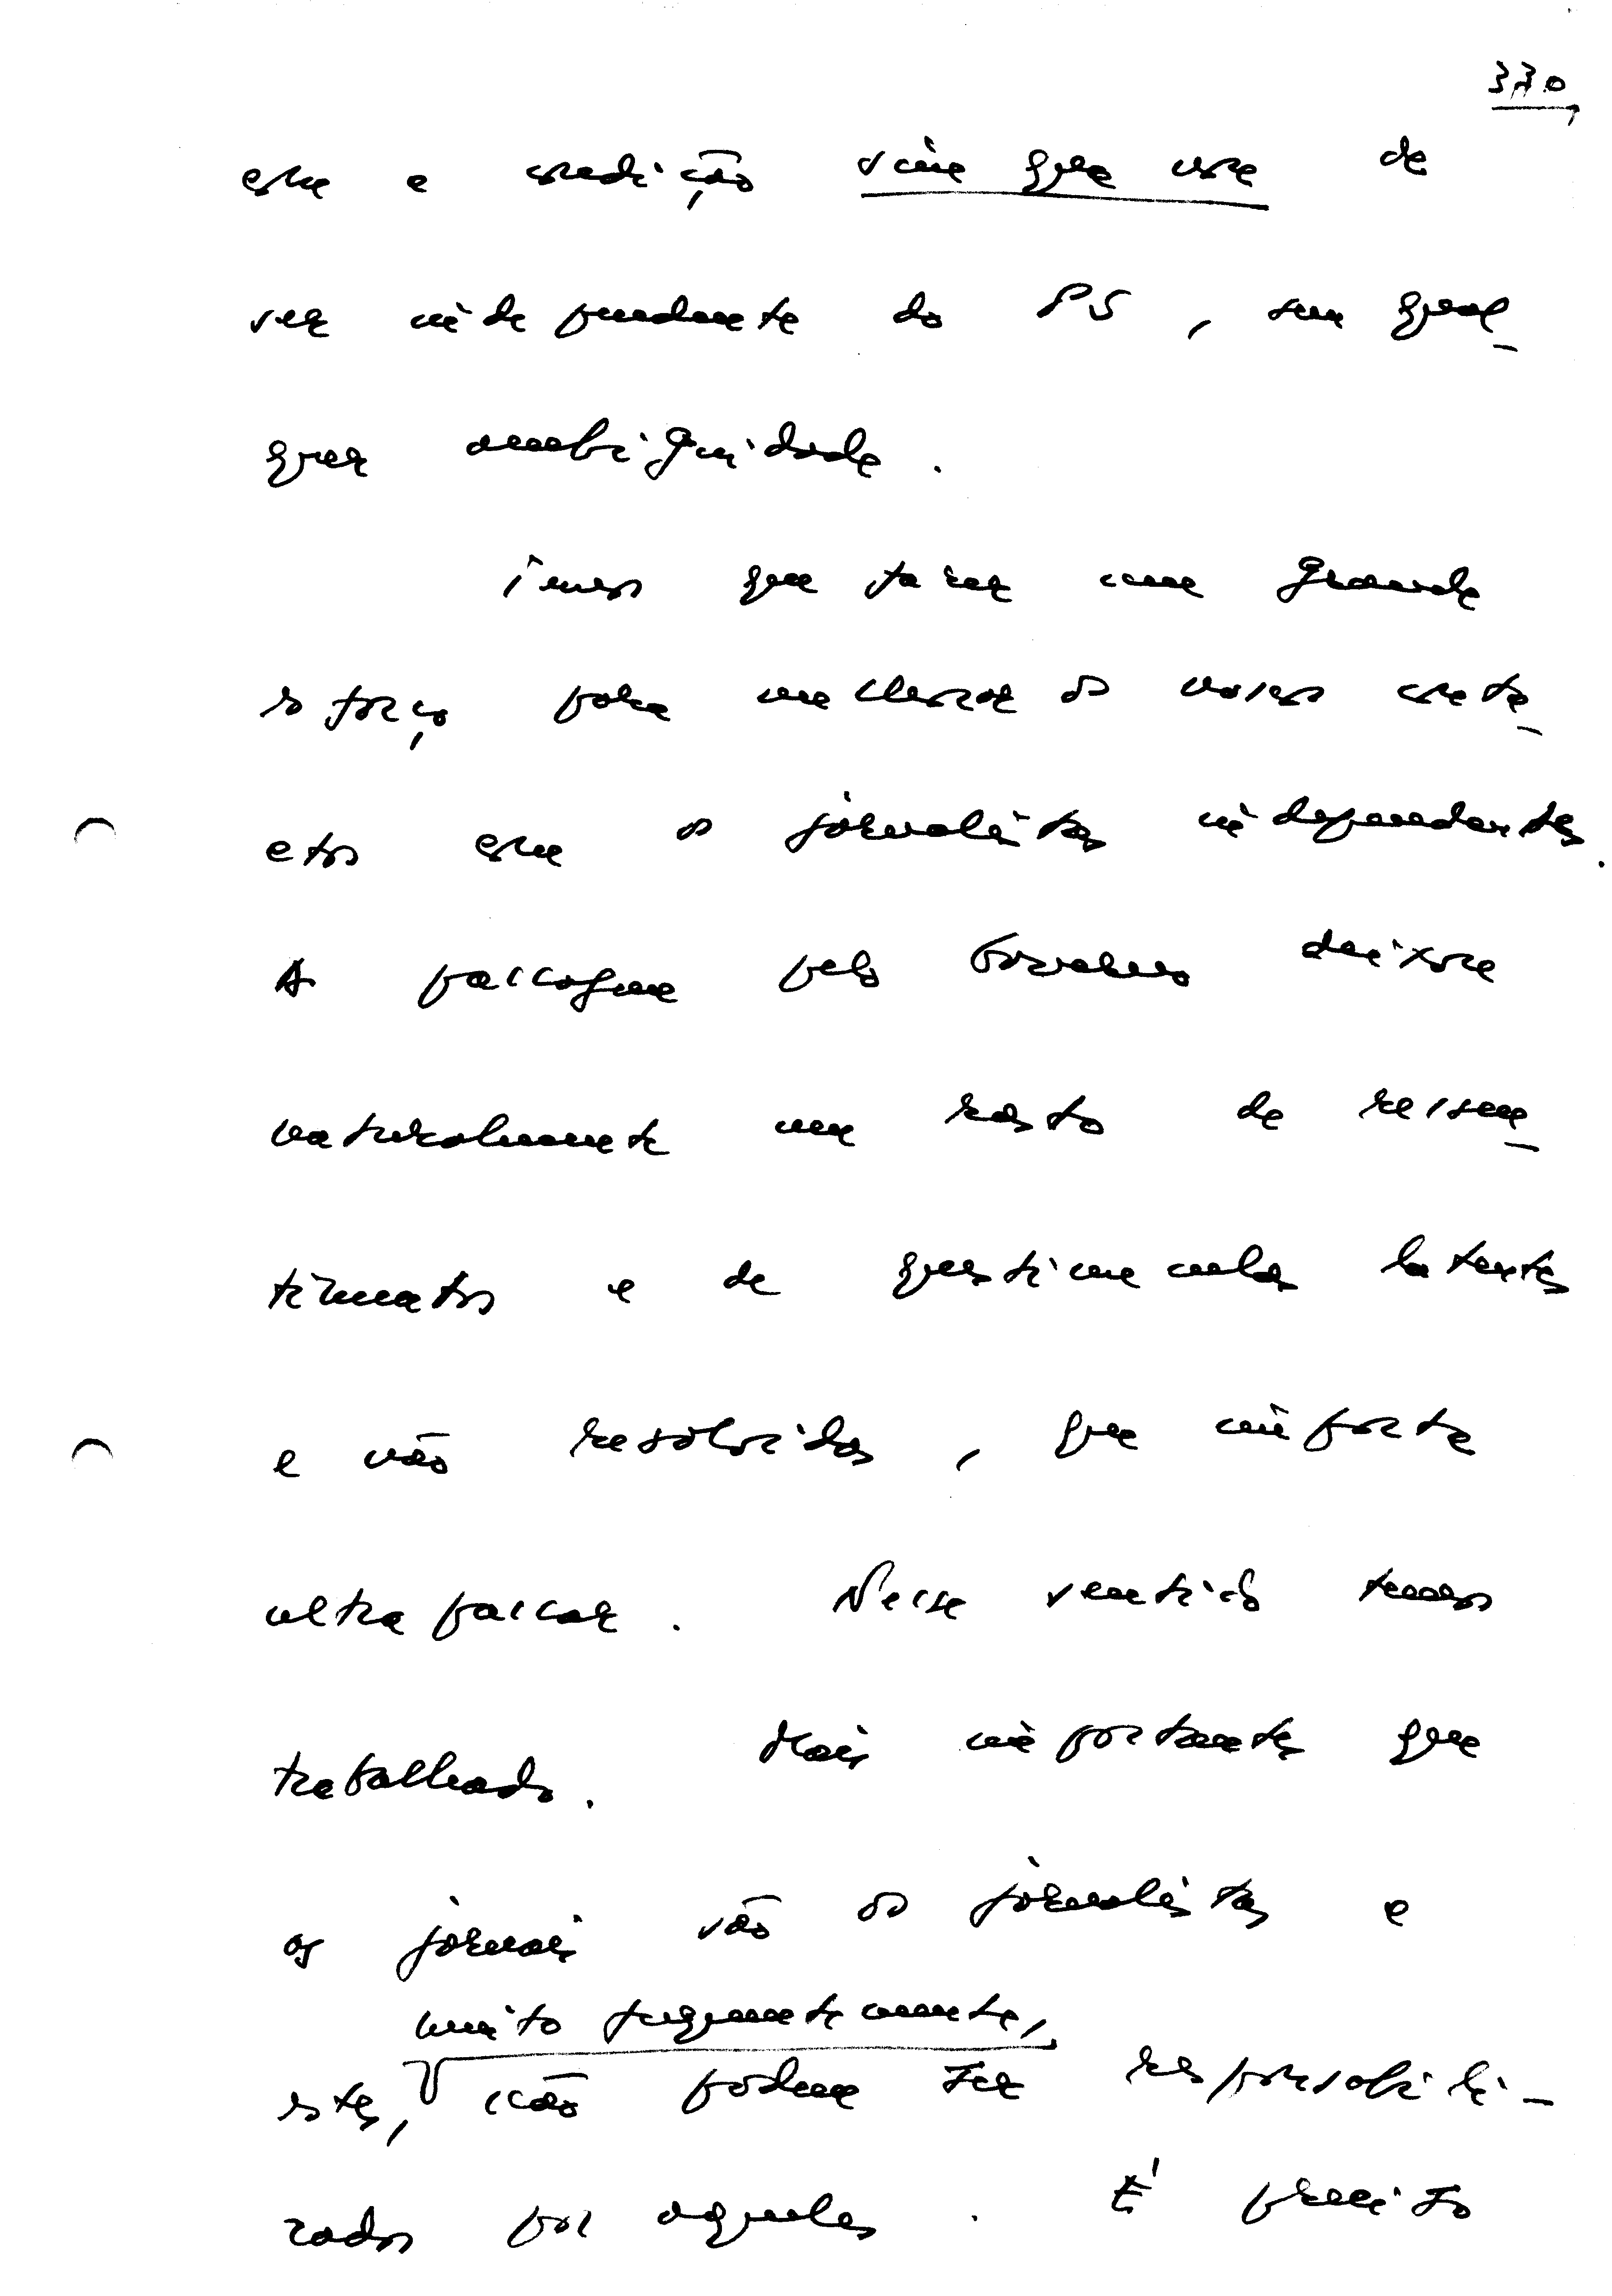 330,
com a condição sine qua non de
ser independente do PS, sem qual-
quer ambiguidade.
Temos que fazer um grande
esforço para melhorar os nossos conta-
ctos com os jornalistas independentes.
A passagem pelo Governo deixou
naturalmente um rasto de ressen-
timentos e de questiúnculas latentes
e não resolvidas, que importa
ultrapassar. Nesse sentido temos
trabalhado. Mais importantes que
os jornais são os jornalistas e
muito frequentemente,
estes, não podem ser responsabili-
zados por aqueles. É preciso